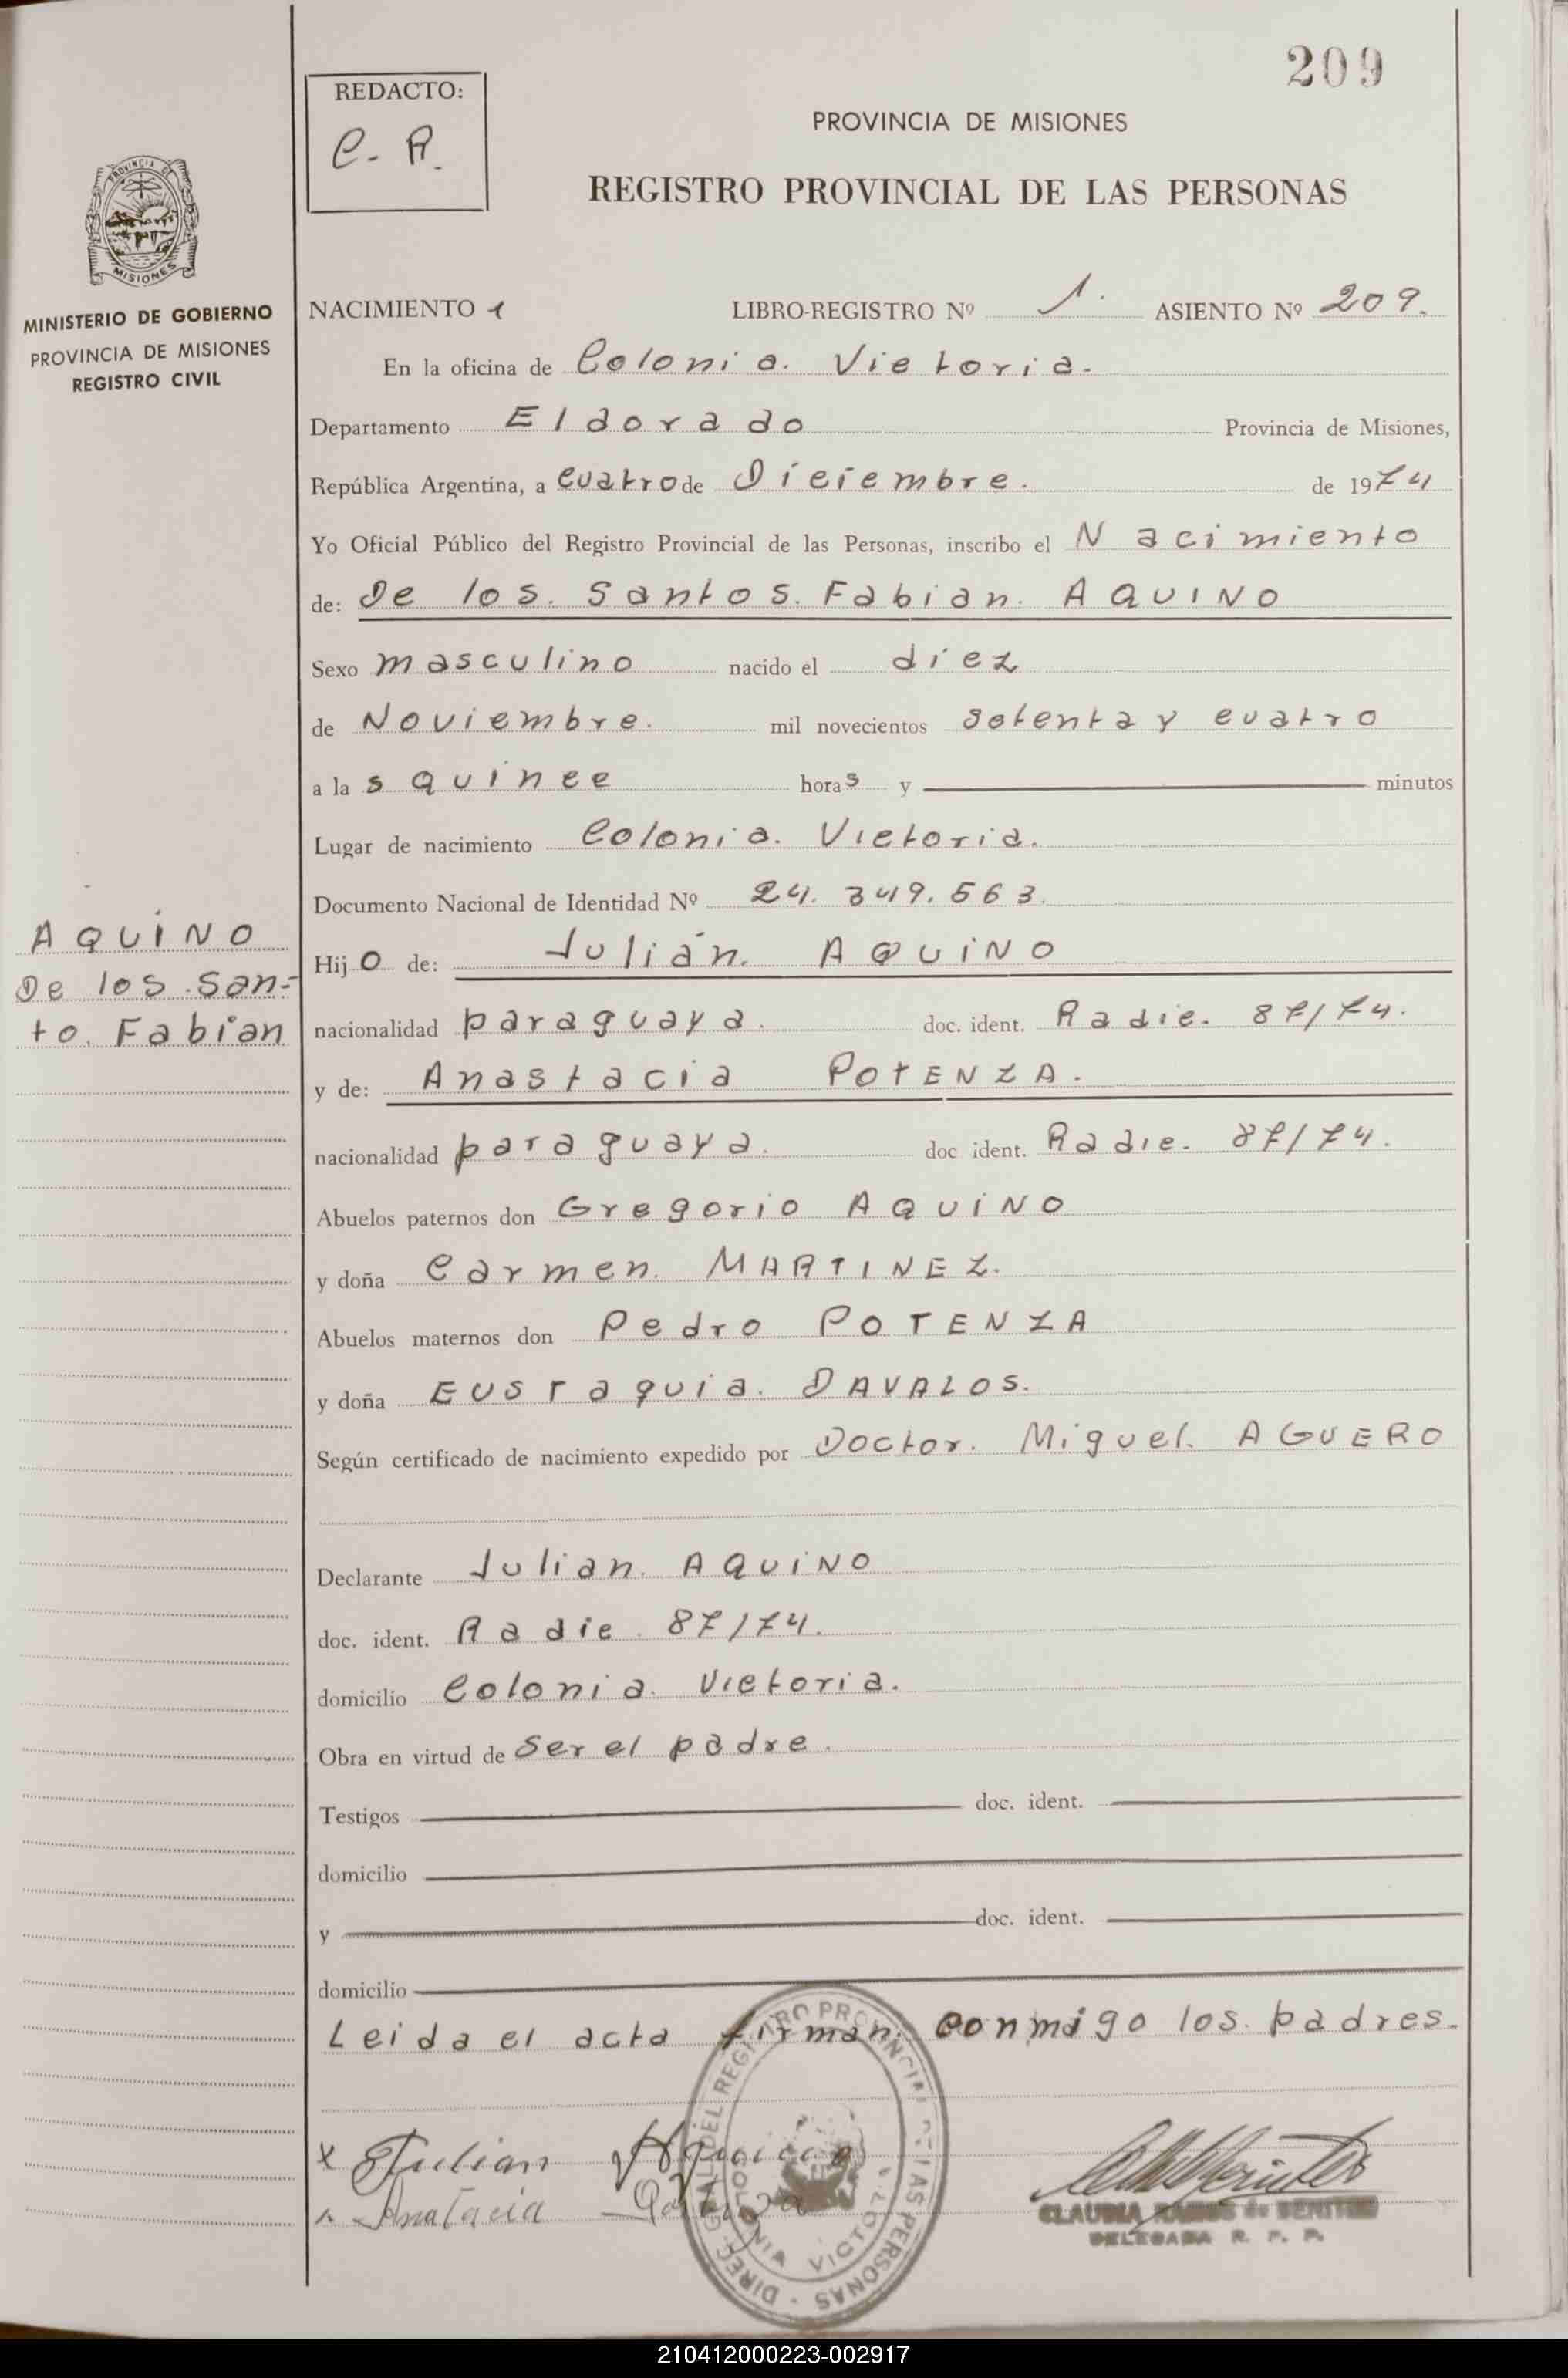 209
REDACTO:
C. R.
PROVINCIA DE MISIONES
REGISTRO PROVINCIAL DE LAS PERSONAS
PROVINCIA DE
MISIONES
MINISTERIO DE GOBIERNO
PROVINCIA DE MISIONES
REGISTRO CIVIL
NACIMIENTO 1 LIBRO-REGISTRO Nº 1. ASIENTO Nº 209.
En la oficina de Colonia. Victoria.
Departamento Eldorado Provincia de Misiones,
República Argentina, a cuatro de Diciembre. de 1974
Yo Oficial Público del Registro Provincial de las Personas, inscribo el Nacimiento
de: De los. Santos. Fabian. AQUINO
Sexo masculino nacido el diez
de Noviembre. mil novecientos setenta y cuatro
a las quince horas y minutos
Lugar de nacimiento Colonia. Victoria.
Documento Nacional de Identidad Nº 24.349.563.
AQUINO
De los San-
to. Fabian
Hijo de: Julián. AQUINO
nacionalidad paraguaya. doc. ident. Radic. 87/74.
y de: Anastacia POTENZA.
nacionalidad paraguaya. doc ident. Radic. 87/74.
Abuelos paternos don Gregorio AQUINO
y doña Carmen. MARTINEZ.
Abuelos maternos don Pedro POTENZA
y doña Eustaquia. DAVALOS.
Según certificado de nacimiento expedido por Doctor. Miguel. AGUERO
Declarante Julian. AQUINO
doc. ident. Radic. 87/74.
domicilio Colonia. Victoria.
Obra en virtud de ser el padre.
Testigos doc. ident.
domicilio
y doc. ident.
domicilio
Leida el acta firman. conmigo los. padres.
x Julian Aquino
x Anatacia
DIREC. GRAL DEL REGISTRO PROVINCIAL DE LAS PERSONAS
COLONIA VICTORIA
CLAUDIA RAMOS de BENITEZ
DELEGADA R. P. P.
210412000223-002917